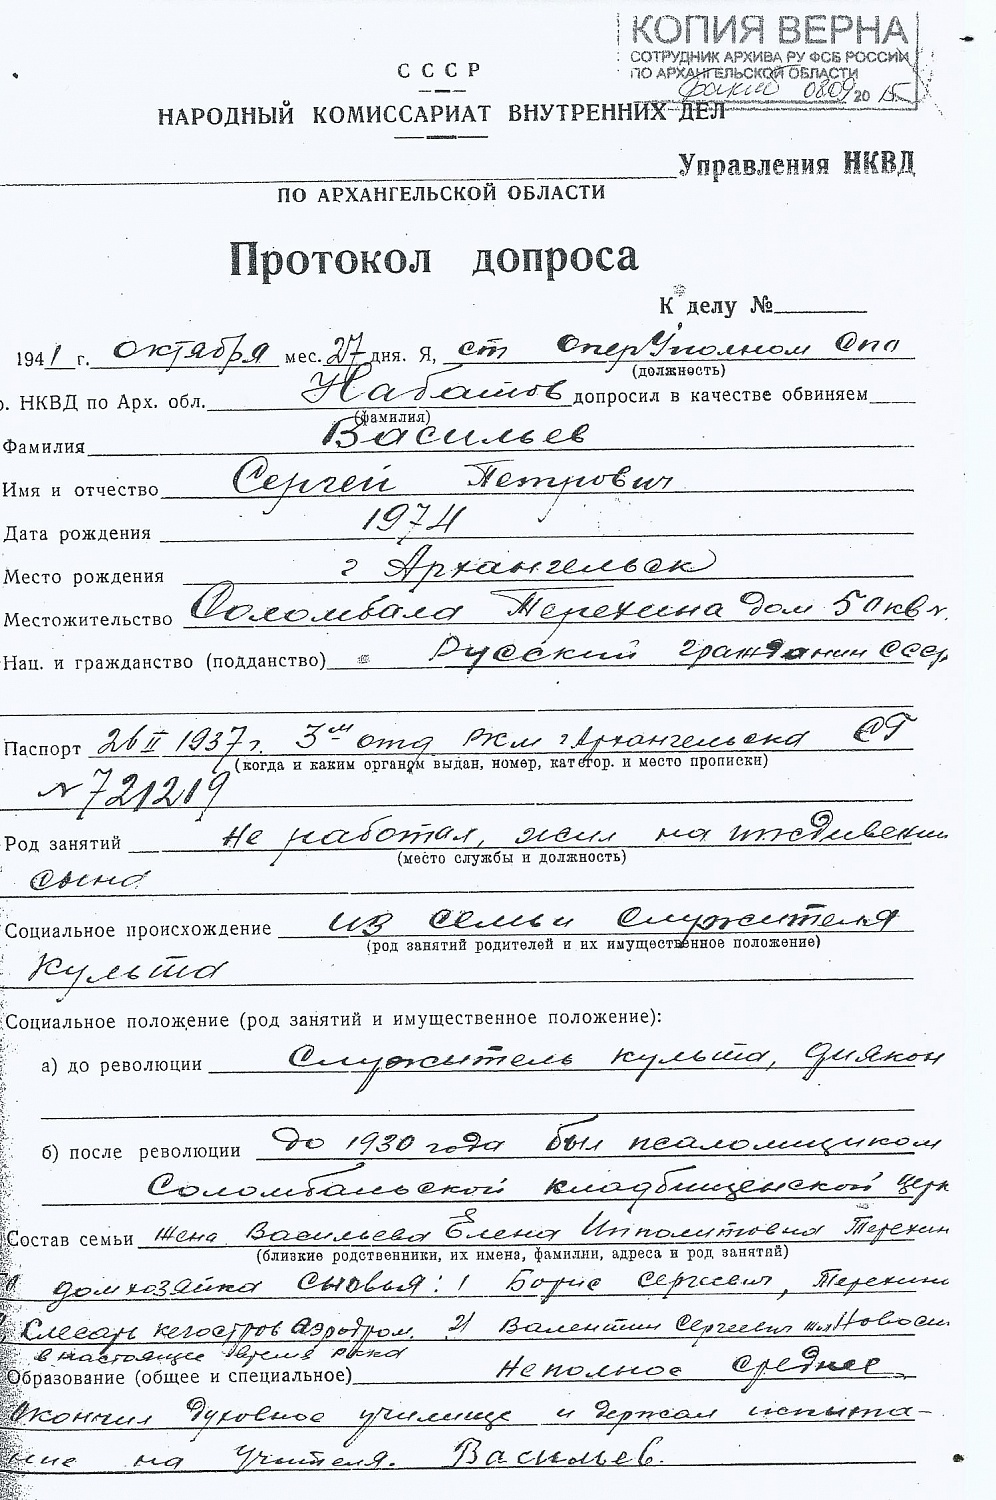 КОПИЯ ВЕРНА
СОТРУДНИК АРХИВА РУ ФСБ РОССИИ
ПО АРХАНГЕЛЬСКОЙ ОБЛАСТИ
08.09 2015
СССР
НАРОДНЫЙ КОМИССАРИАТ ВНУТРЕННИХ ДЕЛ
Управления НКВД
ПО АРХАНГЕЛЬСКОЙ ОБЛАСТИ
Протокол допроса
К делу №
1941 г. октября мес. 27 дня. Я, ст оперуполном Спо
(должность)
о. НКВД по Арх. обл. Набатов допросил в качестве обвиняем
(фамилия)
Фамилия Васильев
Имя и отчество Сергей Петрович
Дата рождения 1974
Место рождения г Архангельск
Местожительство Соломбала Терехина дом 50 кв
Нац. и гражданство (подданство) Русский гражданин СССР
Паспорт 26 II 1937 г. 3м отд РКМ г Архангельска СГ
(когда и каким органом выдан, номер, категор. и место прописки)
№ 721219
Род занятий Не работал, жил на иждивении
(место службы и должность)
сына
Социальное происхождение из семьи служителя
(род занятий родителей и их имущественное положение)
культа
Социальное положение (род занятий и имущественное положение):
а) до революции Служитель культа, диякон
б) после революции до 1930 года был псаломщиком
Соломбальской кладбищенской церк
Состав семьи жена Васильева Елена Ипполитовна Терехин
(близкие родственники, их имена, фамилии, адреса и род занятий)
домхозяйка сыновья: 1 Борис Сергиевич, Терехина
Слесарь кегостров аэродром. 2) Валентин Сергиевич
в настоящее время
Образование (общее и специальное) Неполное среднее,
окончил духовное училище и держал испыта-
ние на учителя. Васильев.